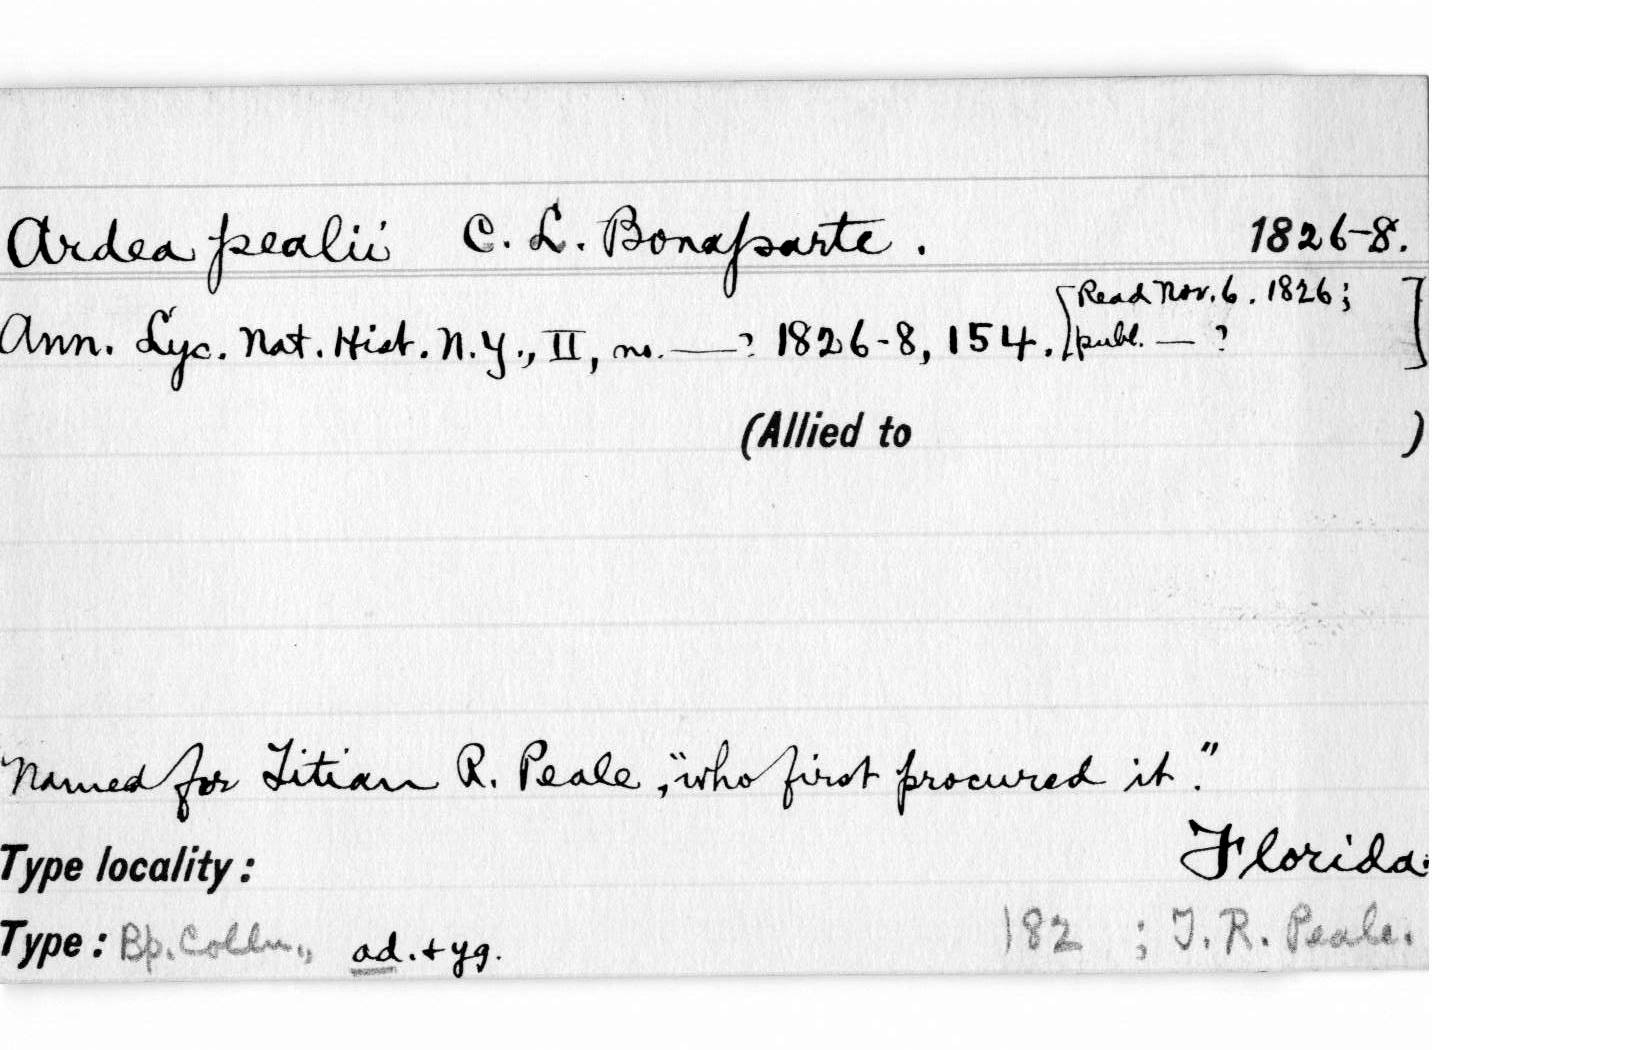 Ardea pealii C. L. Bonaparte. 1826-8.
Ann. Lyc. Nat. Hist. N.Y., II, no. — ? 1826-8, 154. [Read Nov. 6. 1826; publ. — ? ]
(Allied to )
Named for Titian R. Peale, "who first procured it."
Type locality: Florida.
Type: Bp. Colln., ad. + yg. 182 ; T. R. Peale.